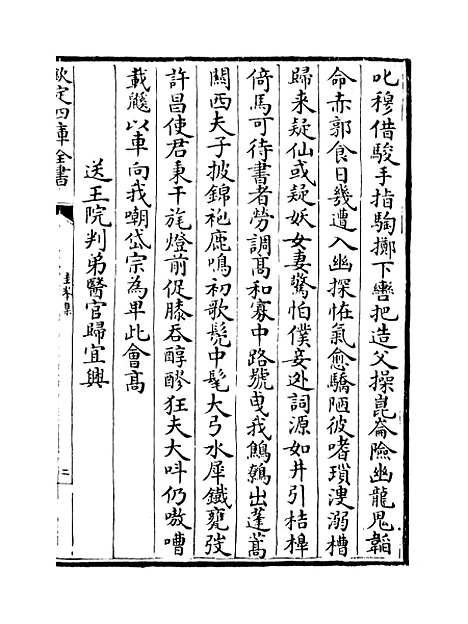 叱穆借駿手指騊擲下轡把造父操崑崙險幽龍鬼韜
命赤郭食日幾遭入幽探怪氣愈驕陋彼嗜瑣溲溺槽
歸来疑仙或疑妖女妻驚怕僕妾逃詞源如井引桔橰
倚馬可待書者勞調髙和寡中路號曳我鷦鷯出蓬蒿
闗西夫子披錦袍鹿鳴初歌髠中髦大弓水犀鐵甕弢
許昌使君秉干旄燈前促膝吞醇醪狂夫大呌仍嗷嘈
載膇以車向我嘲岱宗為卑此會髙
送王院判弟醫官歸宜興
欽定四庫全書
圭峯集
二